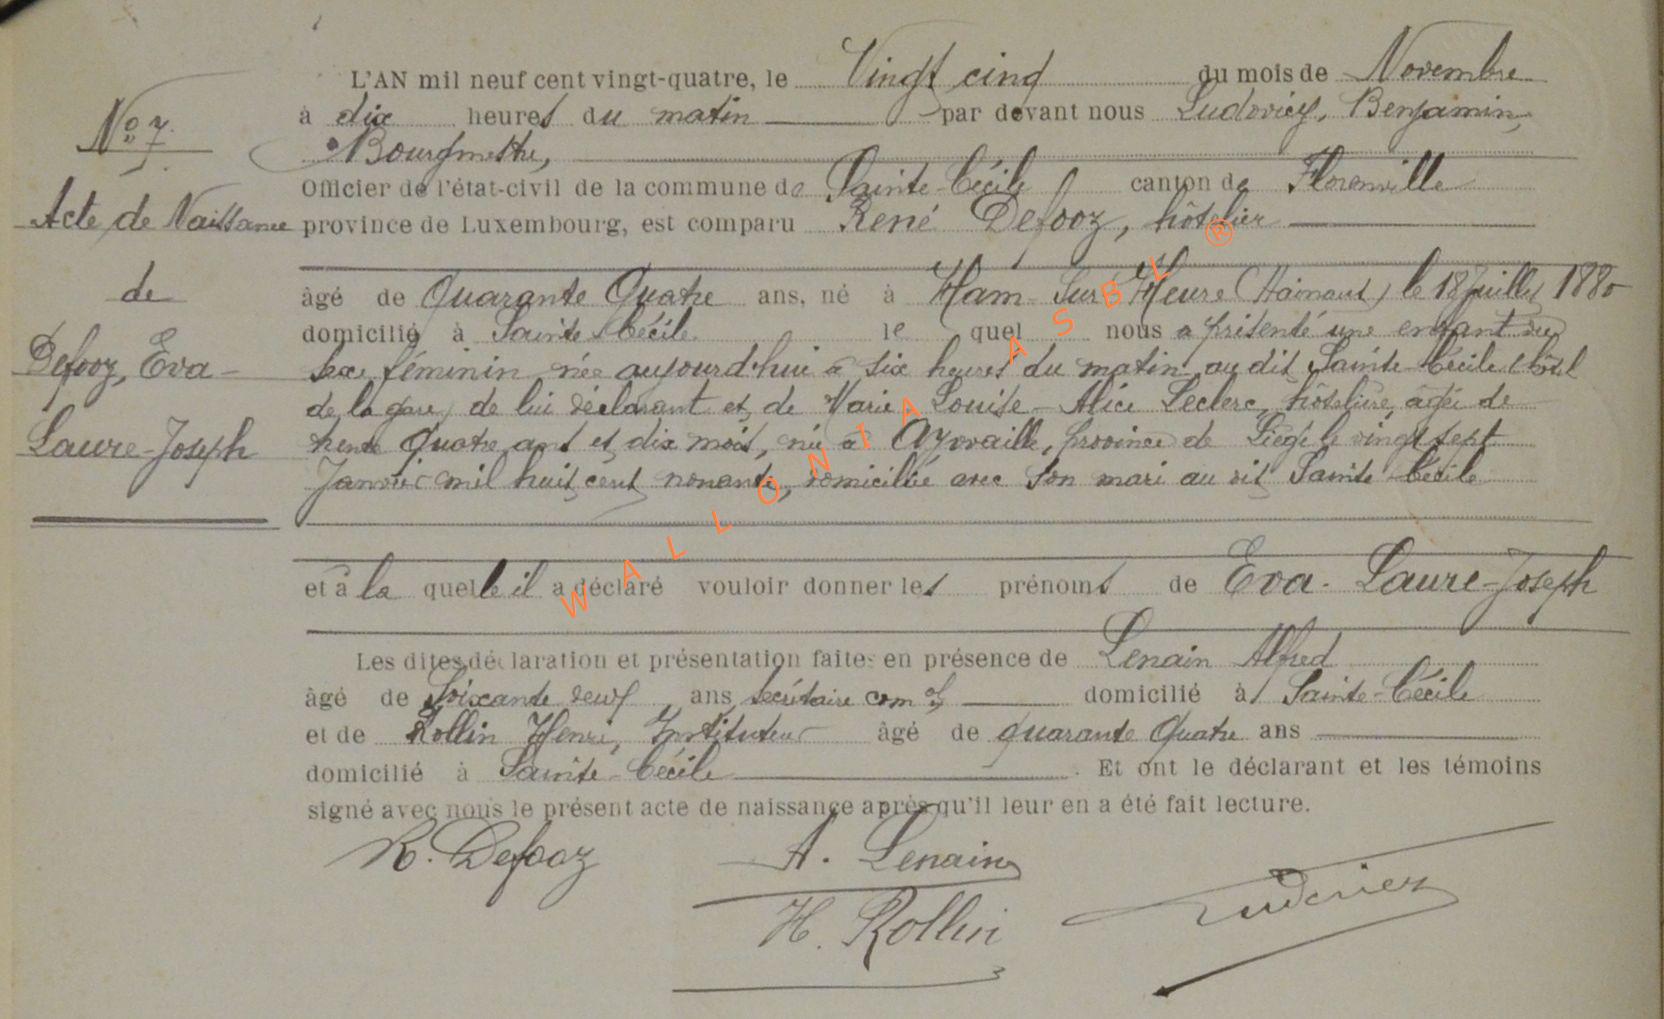 L'AN mil neuf cent vingt-quatre, le Vingt cinq du mois de Novembre
à dix heures du matin par devant nous Ludovicy, Benjamin,
Bourgmestre,
Officier de l'état-civil de la commune de Sainte-Cécile canton de Florenville
province de Luxembourg, est comparu René Defooz, hôtelier
âgé de Quarante Quatre ans, né à Ham-Sur-Heure (Hainaut) le 18 Juillet 1880
domicilié à Sainte Cécile le quel nous a présenté une enfant du
sexe féminin née aujourd'hui à six heures du matin au dit Sainte-Cécile (hôtel
de la gare) de lui déclarant et de Marie-Louise-Alice Leclerc, hôtelière, âgée de
trente Quatre ans et dix mois, née à Aywaille, province de Liège le vingt sept
Janvier mil huit cent nonante, domiciliée avec son mari au dit Sainte Cécile
et à la quelle il a déclaré vouloir donner les prénoms de Eva-Laure-Joseph
Les dites déclaration et présentation faites en présence de Lenain Alfred
âgé de Soixante deux ans secrétaire comal domicilié à Sainte-Cécile
et de Rollin Henri, Instituteur âgé de quarante Quatre ans
domicilié à Sainte-Cécile. Et ont le déclarant et les témoins
signé avec nous le présent acte de naissance après qu'il leur en a été fait lecture.
R. Defooz A. Lenain
H. Rollin Ludovicy
No 7.
Acte de Naissance
de
Defooz, Eva-
Laure-Joseph
WALLONIA ASBL ®